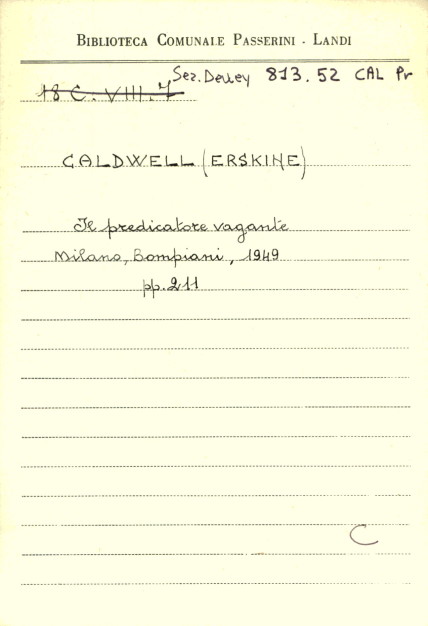 BIBLIOTECA COMUNALE PASSERINI - LANDI
Sez. Dewey 813.52 CAL Pr
18 C. VIII. 7
CALDWELL (ERSKINE)
Il predicatore vagante
Milano, Bompiani, 1949
pp. 211
C